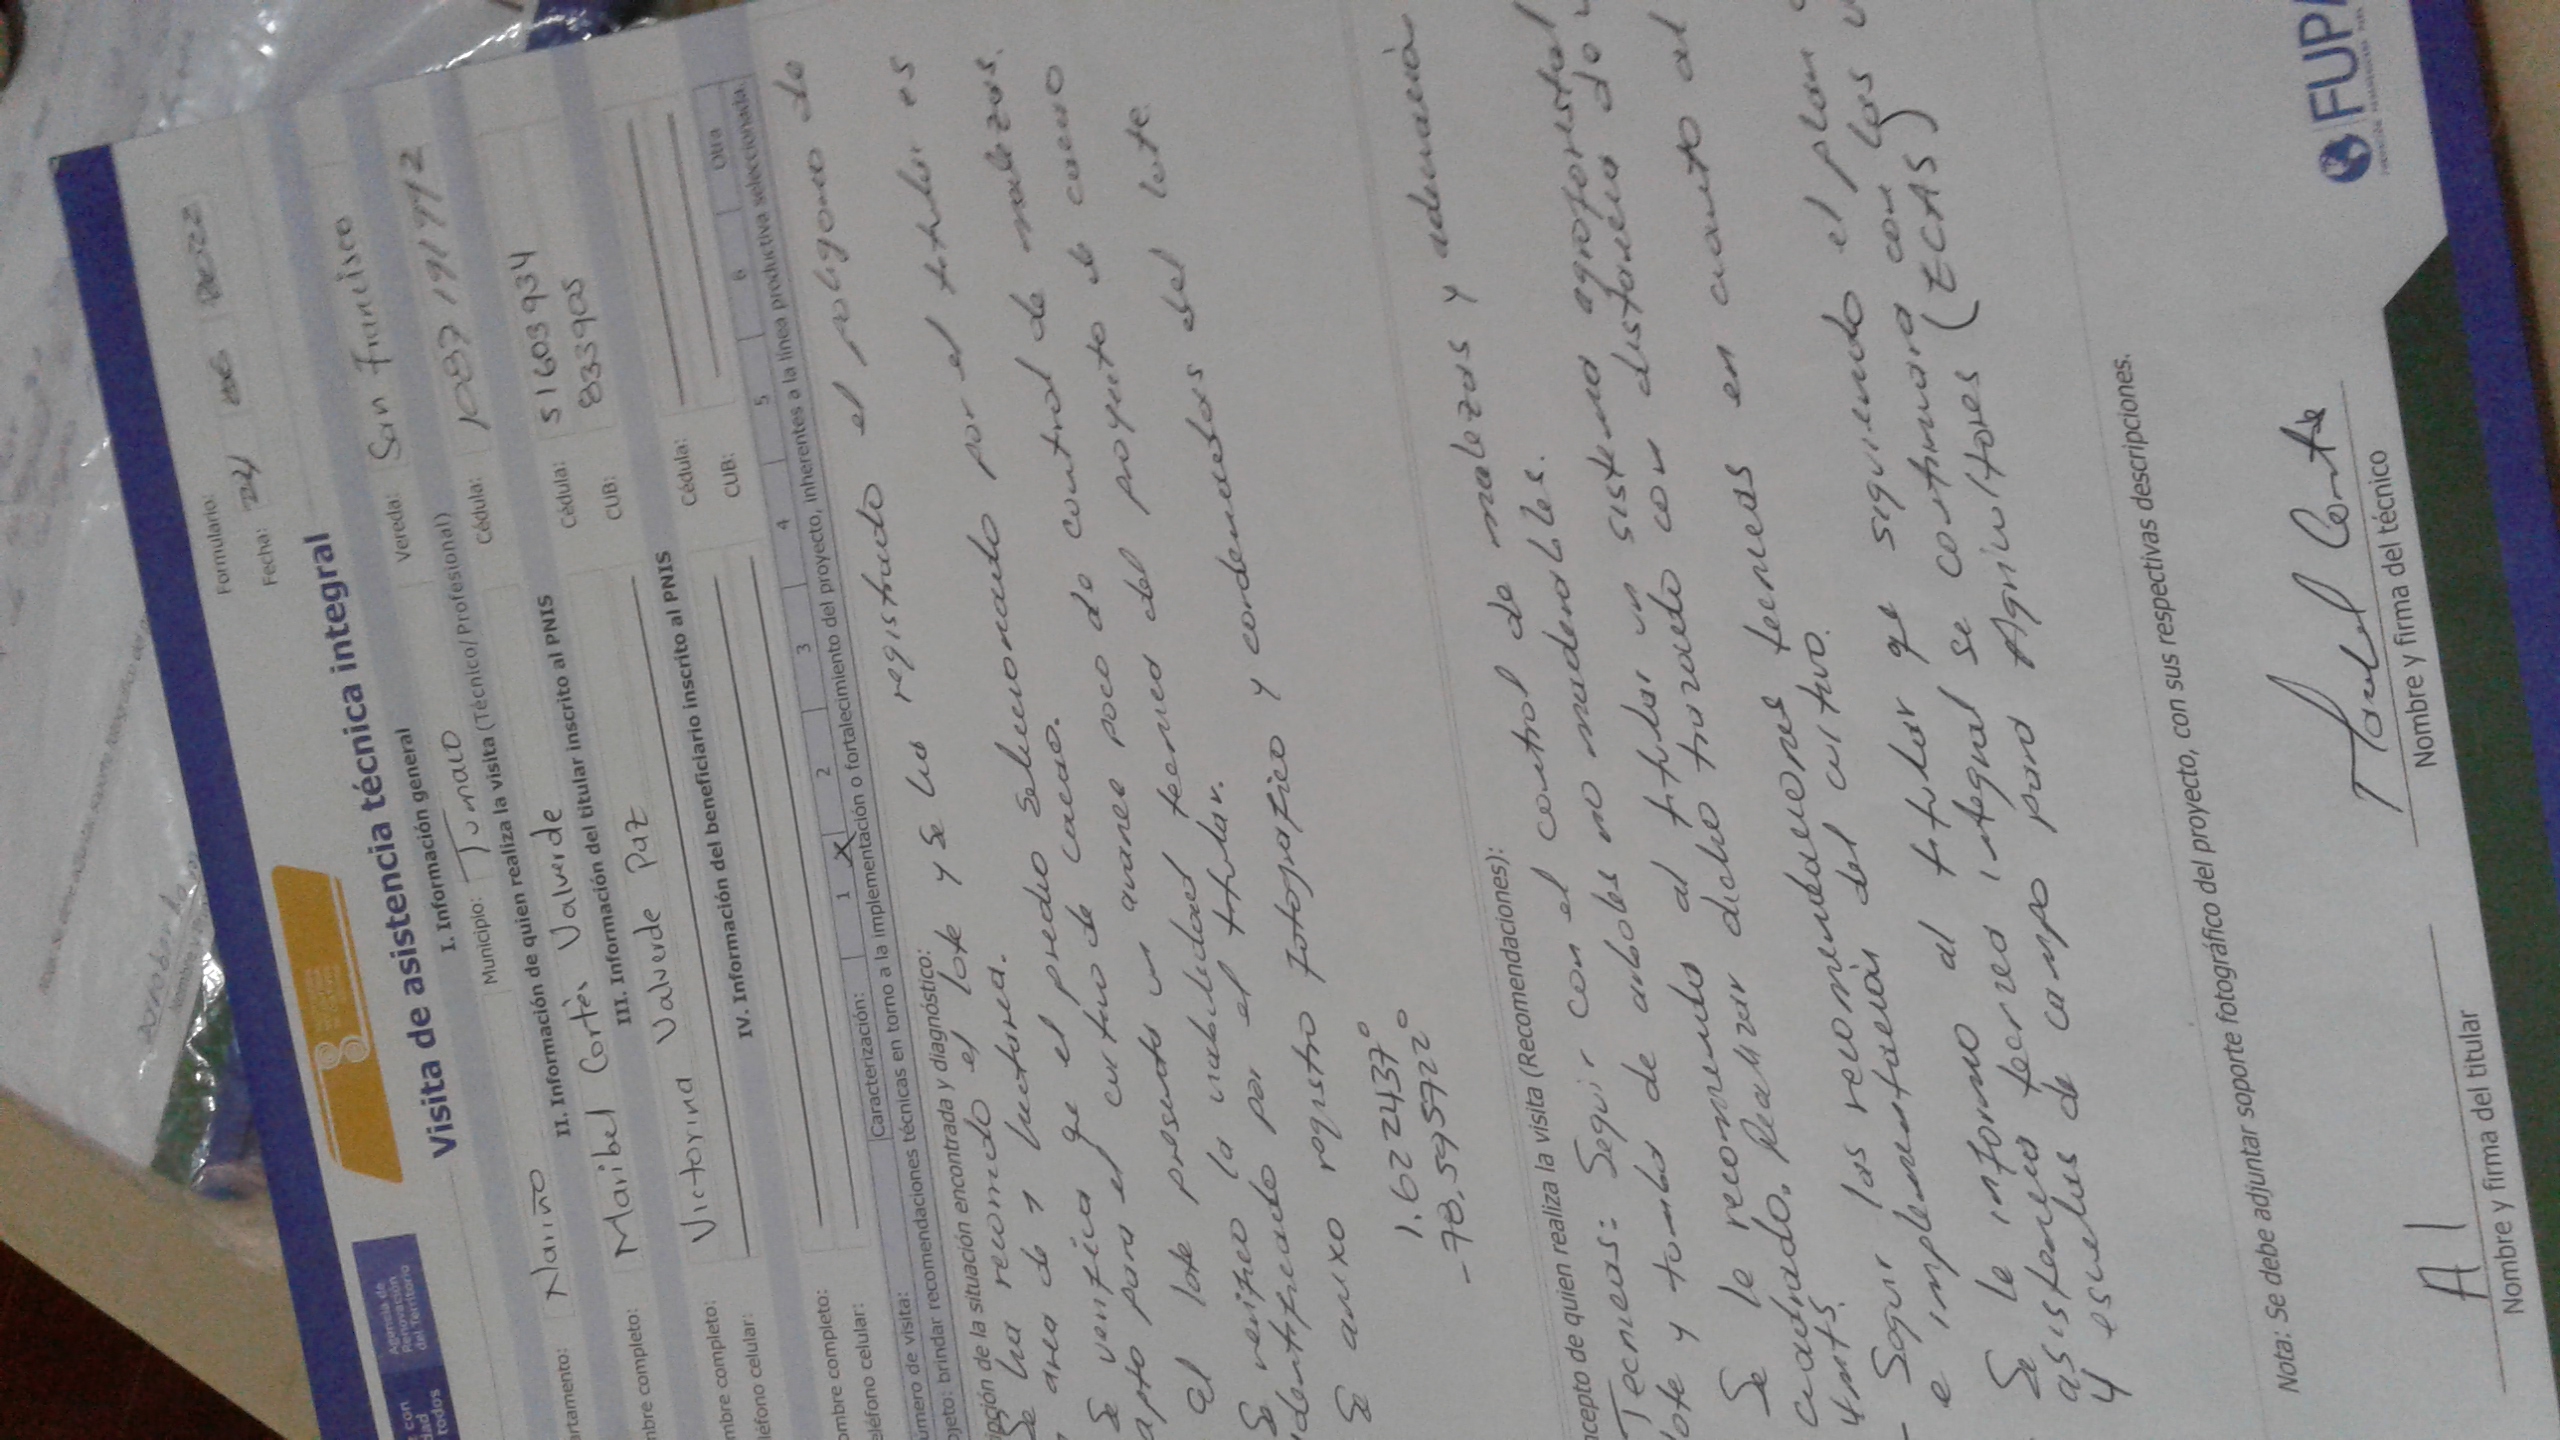 Agencia de
Renovación
del Territorio
Formulario:
Fecha: 24 06 2022
Visita de asistencia técnica integral
I. Información general
artamento: Nariño Municipio: Tumaco Vereda: San Francisco
II. Información de quien realiza la visita (Técnico/Profesional)
mbre completo: Maribel Cortès Valverde Cédula: 1087191992
III. Información del titular inscrito al PNIS
mbre completo: Victorina Valverde Paz Cédula: 51603934
léfono celular: CUB: 833905
IV. Información del beneficiario inscrito al PNIS
ombre completo: Cédula:
eléfono celular: CUB:
úmero de visita: Caracterización: 1 X 2 3 4 5 6 Otra
bjeto: brindar recomendaciones técnicas en torno a la implementación o fortalecimiento del proyecto, inherentes a la línea productiva seleccionada.
ipción de la situación encontrada y diagnóstico:
Se ha recorrido el lote y se ha registrado el poligono de
area de 1 hectarea.
Se verifica qe el predio seleccionado por el titular es
apto para el cultivo de cacao.
el lote presenta un avance poco de control de malezas.
Se verifico la viabilidad tecnica del proyecto de cacao
identificado por el titular.
Se anexo registro fotografico y cordenadas del lote
1.6222437°
-78.5955722°
ncepto de quien realiza la visita (Recomendaciones):
Tecnicas: Seguir con el control de malezas y adecuaciòn
lote y tumba de arboles no maderables.
Se le recomienda al titular un sistema agroforestal
cuadrado. Realizar dicho trazado con distancia de
4mts.
- Seguir las recomendaciones tecnicas en cuanto al
e implementaciòn del cultivo.
Se le informo al titular qe siguiendo el plan
asistencia tecnica integral se continuara con las
y escuelas de campo para Agricultores (ECAS)
Nota: Se debe adjuntar soporte fotográfico del proyecto, con sus respectivas descripciones.
Nombre y firma del titular
Nombre y firma del técnico
FUP